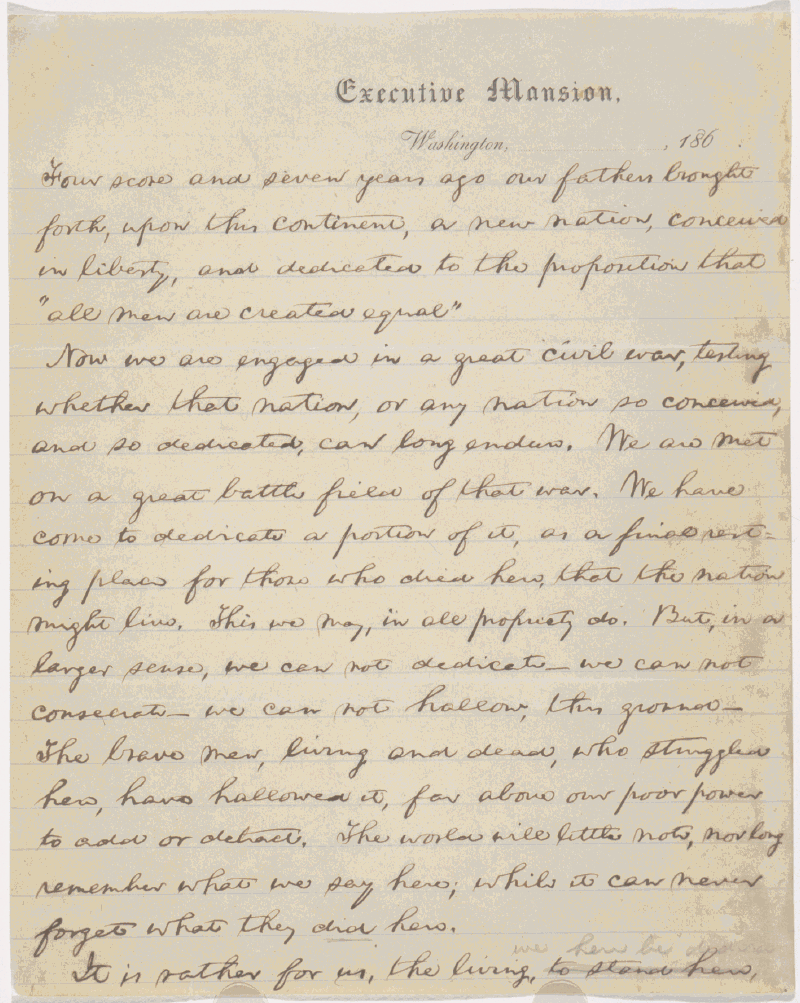 Executive Mansion,
Washington, , 186 .
Four score and seven years ago our fathers brought
forth, upon this continent, a new nation, conceived
in liberty, and dedicated to the proposition that
"all men are created equal"
Now we are engaged in a great civil war, testing
whether that nation, or any nation so conceived,
and so dedicated, can long endure. We are met
on a great battle field of that war. We have
come to dedicate a portion of it, as a final rest-
ing place for those who died here, that the nation
might live. This we may, in all propriety do. But, in a
larger sense, we can not dedicate— we can not
consecrate— we can not hallow, this ground—
The brave men, living and dead, who struggled
here, have hallowed it, far above our poor power
to add or detract. The world will little note, nor long
remember what we say here; while it can never
forget what they did here.
we here be dedica
It is rather for us, the living, to stand here,